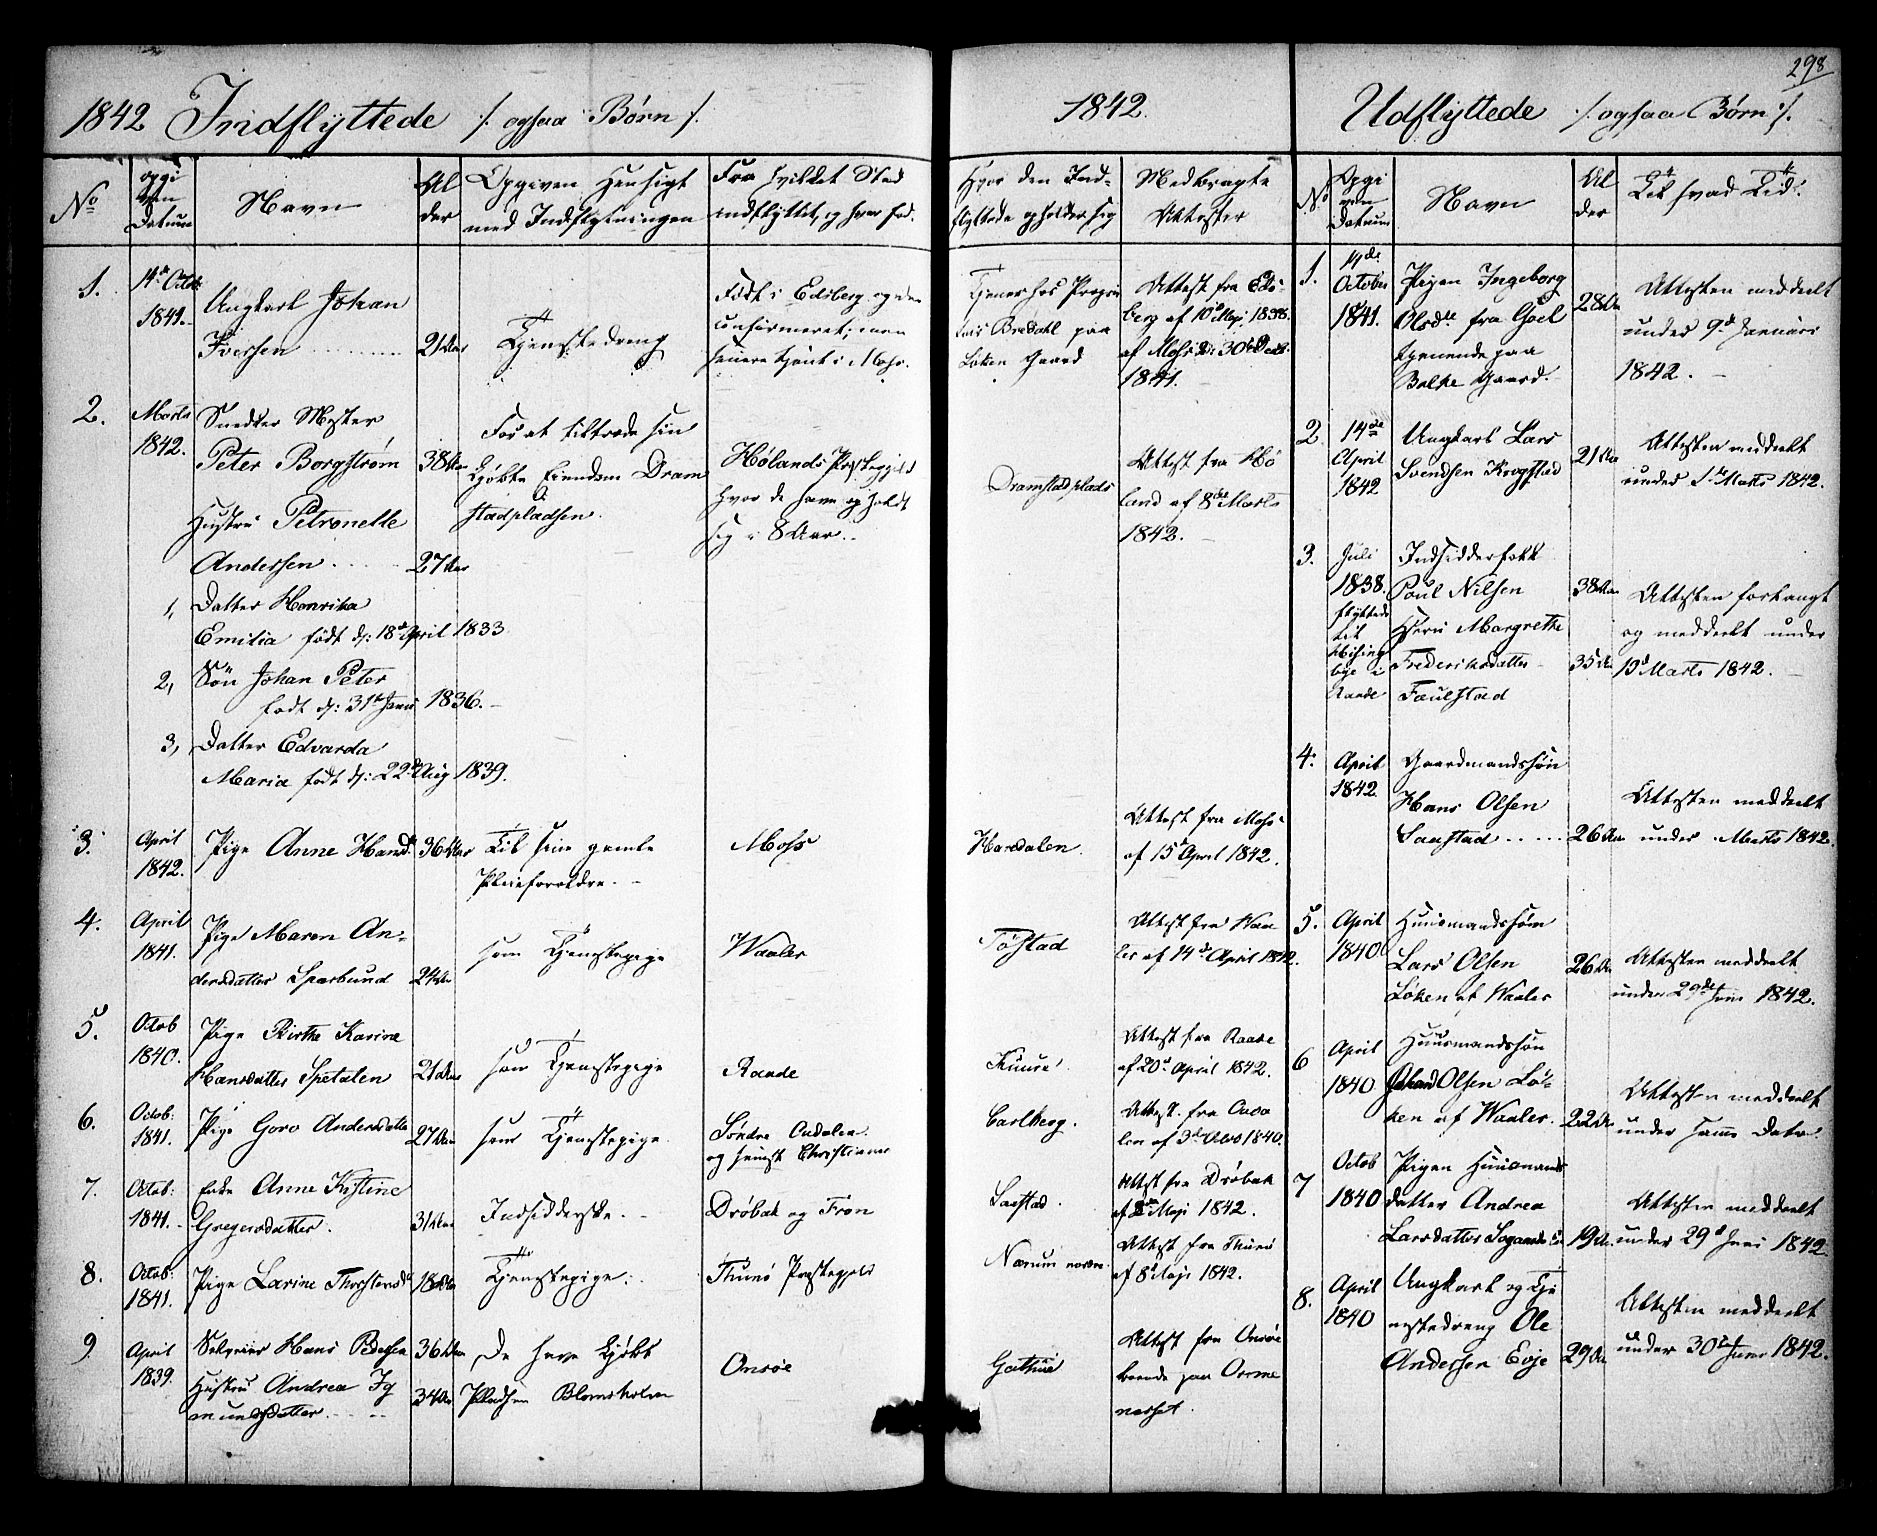 298
1842 Indflyttede /: ogsaa Børn :/
1842.
Udflyttede /: ogsaa Børn :/.
No
opgiven Datum
Navn
Alder
Opgiven Hensigt
med Indflytningen
Fra hvilket Sted
indflyttet, og hvor fød.
Hvor den Ind-
flyttede opholder sig
Medbragte
Attester
No
Opgiven Datum
Navn
Alder
Til hvad Tid.
1.
14de Octob:
1841.
Ungkarl Johan
Iversen
21 Aar
Tjenestedreng
Født i Edsberg og der
confirmeret; men
senere tjent i Moss.
Tjener hos
Bredahl paa
Løken Gaard
Attest fra Eds-
berg af 10de Maji 1838.
af Moss d: 30te Decbr.
1841.
2.
Marts
1842.
Snedker Mester
Peter Borgstrøm
38 Aar
Hustru Petronelle
Andersen
27 Aar
1, Datter Henrika
Emilia født d: 18de April 1833
2, Søn Johan Peter
født d: 31te Janu 1836.
3, Datter Edvarda
Maria født d: 22de Aug 1839.
For at tiltræde sin
kjøbte Eiendom Dram
stadpladsen.
Hølands Præstegjeld
hvor de have opholdt
sig i 8 Aar.
Dramstadplads
Attest fra Hø
land af 8de Marts
1842.
3.
April
1842.
Pige Anne Hansd.
36 Aar
Til sine gamle
Pleieforældre.
Moss
Haredalen.
Attest fra Moss
af 15de April 1842.
4.
April
1841.
Pige Maren An-
dersdatter Sparbund
24 Aar
som Tjenestepige
Waaler
Tøstad
Attest fra Waa
ler af 14de April 1842.
5.
Octob
1840.
Pige Birthe Karine
Hansdatter Spetalen
21 Aar
som Tjenestepige
Raade
Attest fra Raade
af 20de April 1842.
6.
Octob:
1841.
Pige Goro Andersdatter
27 Aar
som Tjenestepige
Søndre Oudalen
og senest Christiania
Carlberg.
Attest fra Ouda
len af 3de 1840.
7.
Octob:
1841.
Enke Anne Kistine
Gregersdatter.
31 Aar
Indsidderske.
Drøbak og Fron
Saxstad.
Attest fra Drøbak
af 2de Maji 1842.
8.
Octob:
1841.
Pige Larine Thorstensd.
18 Aar
Tjenestepige.
Thunø Præstegjeld
Nærum nordre
Attest fra Thunø
af 8de Maji 1842.
9.
April
1839.
Selveier Hans Pedersen
36 Aar
Hustru Andrea Ig
mundsdatter.
34 Aar
De have kjøbt
Pladsen Blomsholm
Onsøe
Attest fra Onsøe
boende paa
1.
14de
October
1841.
Pigen Ingeborg
Olsdtr fra Goel
tjenende paa
Balke Gaard.
28 Aar
Attesten meddeelt
under 9de Januari
1842.
2
14de
April
1842
Ungkarl Lars
Svendsen Krogstad
21 Aar
Attesten meddeelt
under 1te Marts 1842.
3.
Juli
1838.
flyttede
til
i
Raade
Indsidderfolk
Poul Nilsen
38 Aar
Margrethe
Frederiksdatter
35 Aar
Faulstad
Attesten forlangt
og meddeelt under
Marts 1842.
4.
April
1842.
Gaardmandssøn
Hans Olsen
Saxstad
26 Aar
Attesten meddeelt
under Marts 1842.
5.
April
1840
Huusmandssøn
Lars Olsen
Løken af Waaler
26 Aar
Attesten meddeelt
under 29de Juni 1842.
6
April
1840
Huusmandssøn
Johan Olsen Lø-
ken af Waaler.
22 Aar
Attesten meddeelt
under samme Dato.
7
Octob
1840
Pigen Huusmands
datter Andrea
Larsdatter
19 Aar
Attesten meddeelt
under 29de Juni 1842
8.
April
1840
Ungkarl og Tje
nestedreng Ole
Andersen Evje
29 Aar
Attesten meddeelt
under 30te Juni 1842.